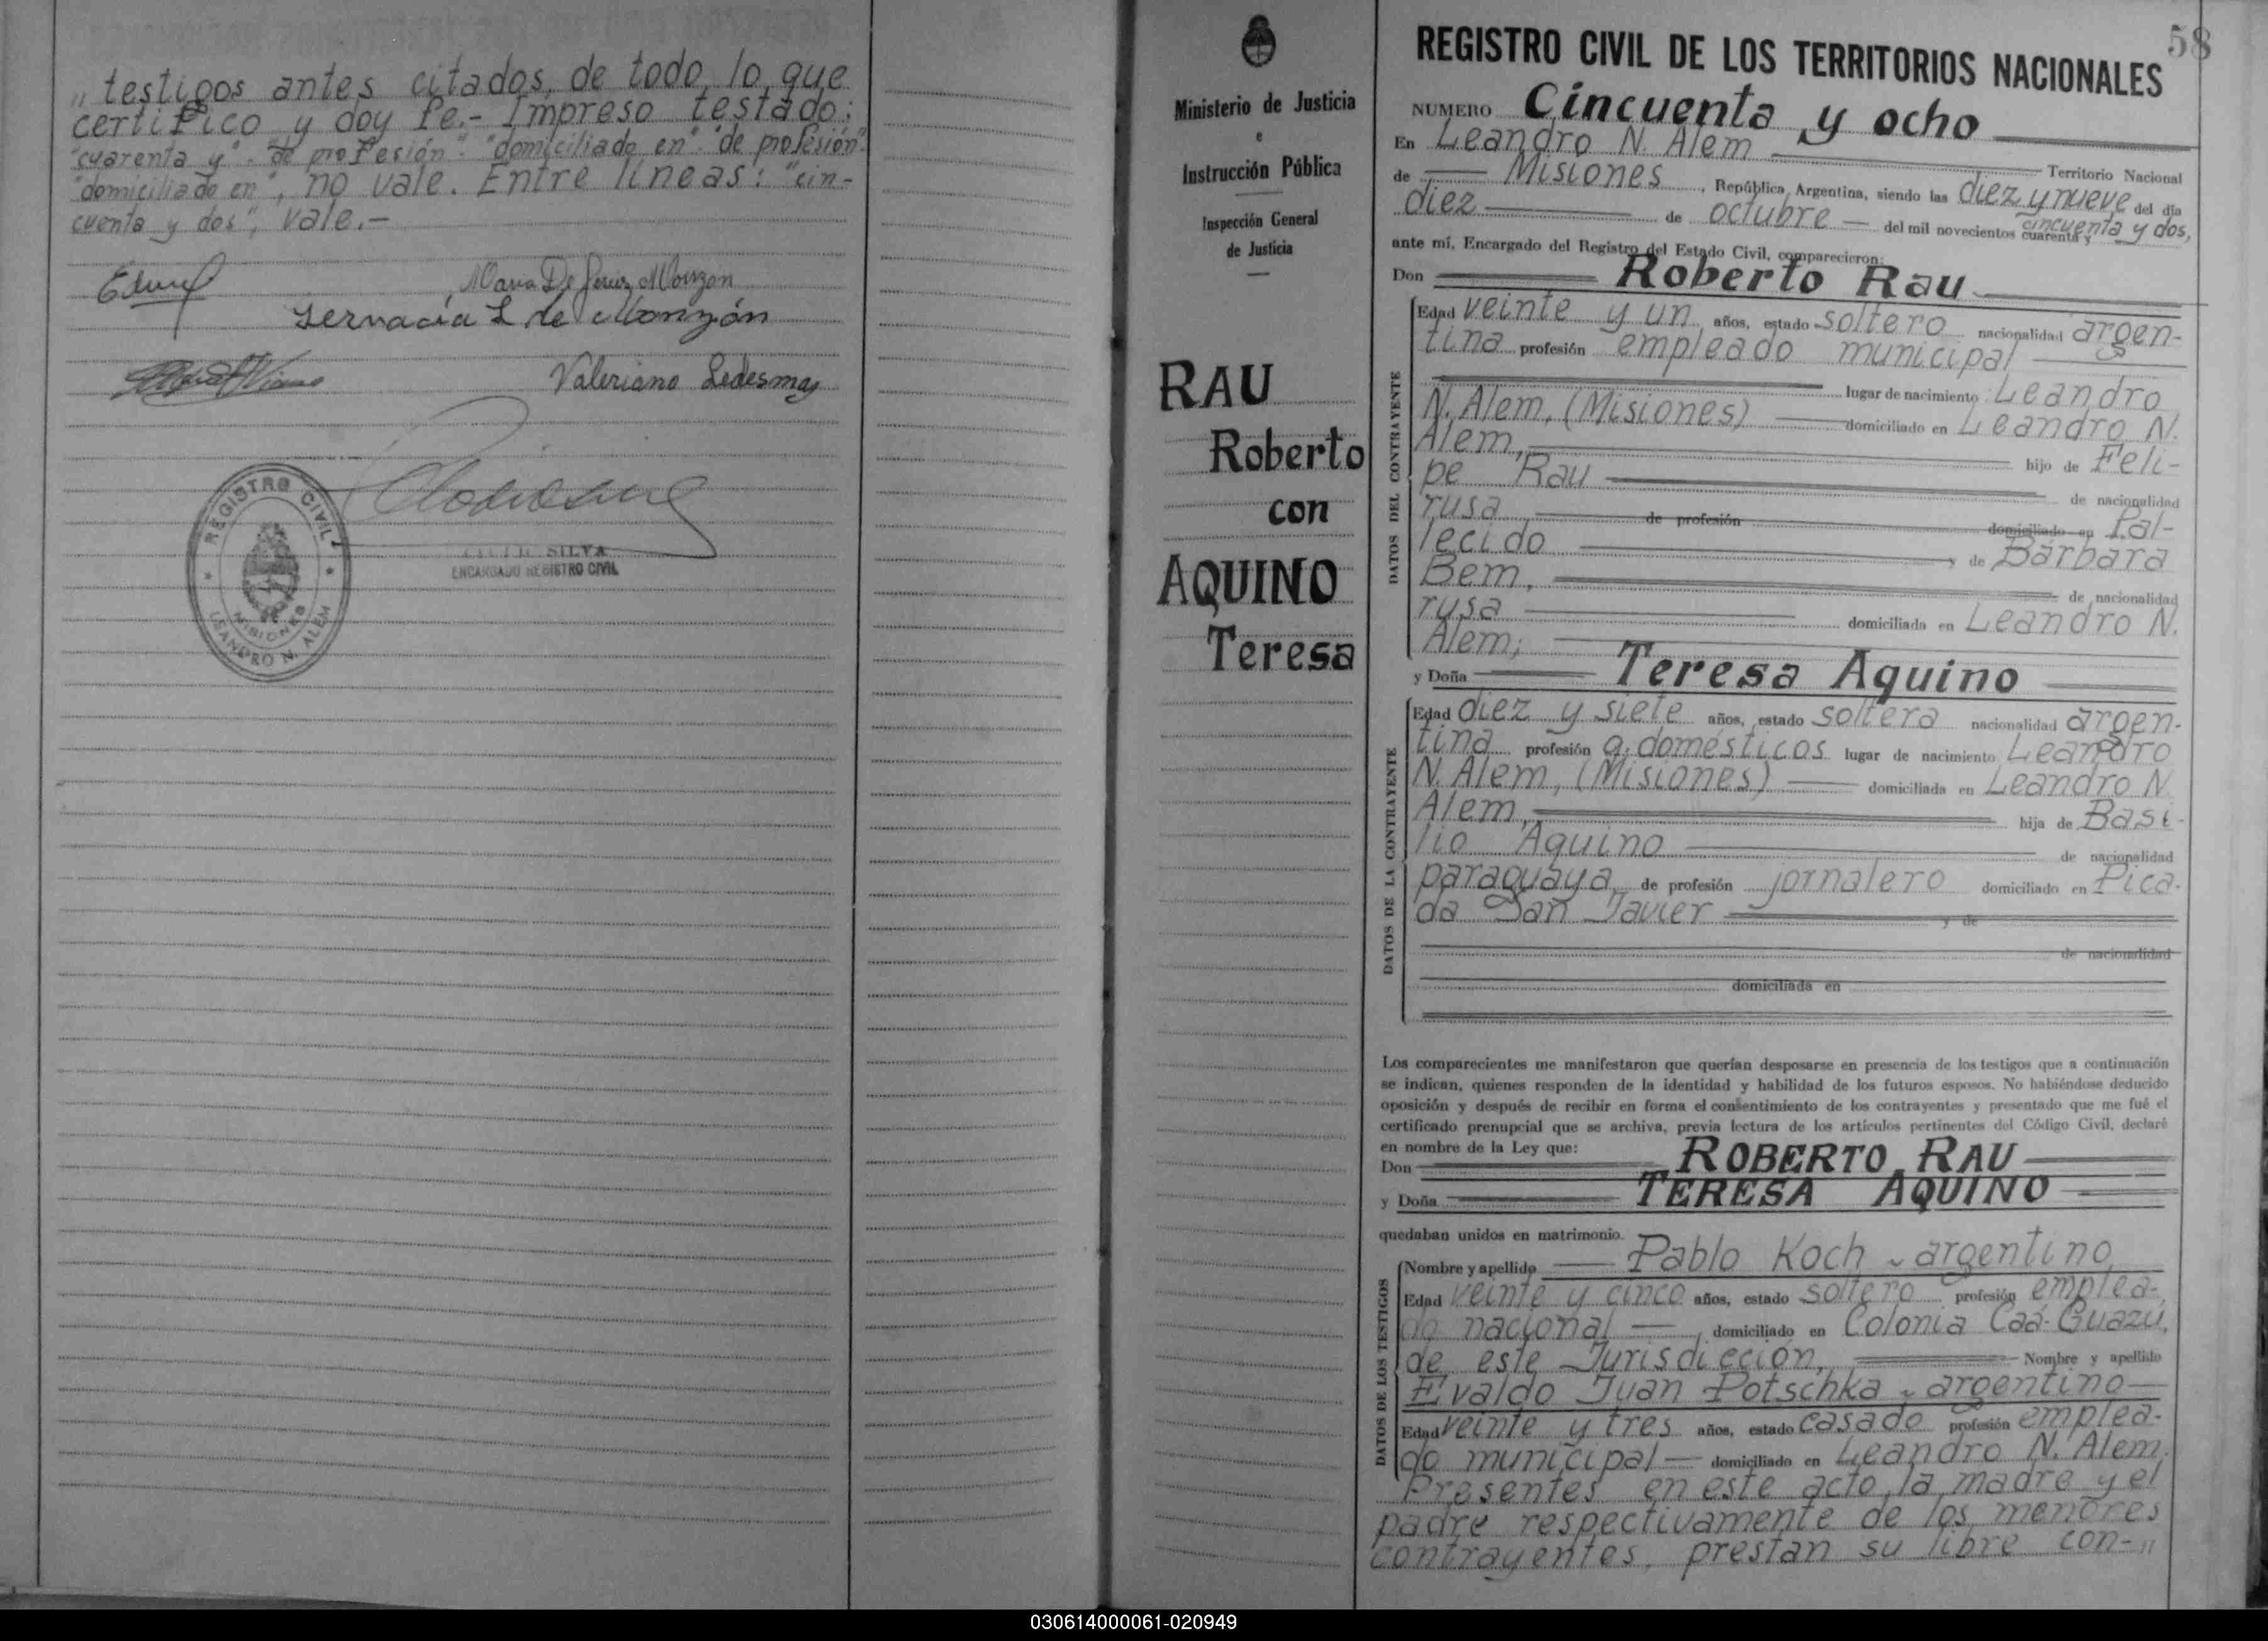 „ testigos antes citados, de todo lo que
certifico y doy fe.- Impreso testado:
"cuarenta y". "de profesión". "domiciliado en". "de profesión".
"domiciliado en", no vale. Entre líneas: "cin-
cuenta y dos", vale.-
Maria De Jesus Monzon
Servacia L de Monzón
Valeriano Ledesma
REGISTRO CIVIL
MISIONES
LEANDRO N. ALEM
SILVA
ENCARGADO REGISTRO CIVIL
Ministerio de Justicia
e
Instrucción Pública
Inspección General
de Justicia
RAU
Roberto
con
AQUINO
Teresa
58
REGISTRO CIVIL DE LOS TERRITORIOS NACIONALES
NUMERO Cincuenta y ocho
En Leandro N. Alem Territorio Nacional
de Misiones, República Argentina, siendo las diez y nueve del día
diez de octubre del mil novecientos cuarenta y cincuenta y dos,
ante mí, Encargado del Registro del Estado Civil, comparecieron:
Don Roberto Rau
DATOS DEL CONTRAYENTE
Edad veinte y un años, estado soltero nacionalidad argen-
tina profesión empleado municipal
lugar de nacimiento Leandro
N. Alem, (Misiones) domiciliado en Leandro N.
Alem, hijo de Feli-
pe Rau de nacionalidad
rusa de profesión domiciliado en fal-
lecido y de Bárbara
Bem, de nacionalidad
rusa domiciliada en Leandro N.
Alem;
y Doña Teresa Aquino
DATOS DE LA CONTRAYENTE
Edad diez y siete años, estado soltera nacionalidad argen-
tina profesión q. domésticos lugar de nacimiento Leandro
N. Alem, (Misiones) domiciliada en Leandro N.
Alem, hija de Basi-
lio Aquino de nacionalidad
paraguaya, de profesión jornalero domiciliado en Pica-
da San Javier y de
de nacionalidad
domiciliada en
Los comparecientes me manifestaron que querían desposarse en presencia de los testigos que a continuación
se indican, quienes responden de la identidad y habilidad de los futuros esposos. No habiéndose deducido
oposición y después de recibir en forma el consentimiento de los contrayentes y presentado que me fué el
certificado prenupcial que se archiva, previa lectura de los artículos pertinentes del Código Civil, declaré
en nombre de la Ley que:
Don ROBERTO RAU
y Doña TERESA AQUINO
quedaban unidos en matrimonio.
DATOS DE LOS TESTIGOS
Nombre y apellido Pablo Koch - argentino
Edad veinte y cinco años, estado soltero profesión emplea-
do nacional domiciliado en Colonia Caá-Guazú,
de este Jurisdicción, Nombre y apellido
Evaldo Juan Potschka - argentino
Edad veinte y tres años, estado casado profesión emplea-
do municipal domiciliado en Leandro N. Alem.
Presentes en este acto, la madre y el
padre respectivamente de los menores
contrayentes, prestan su libre con-„
030614000061-020949